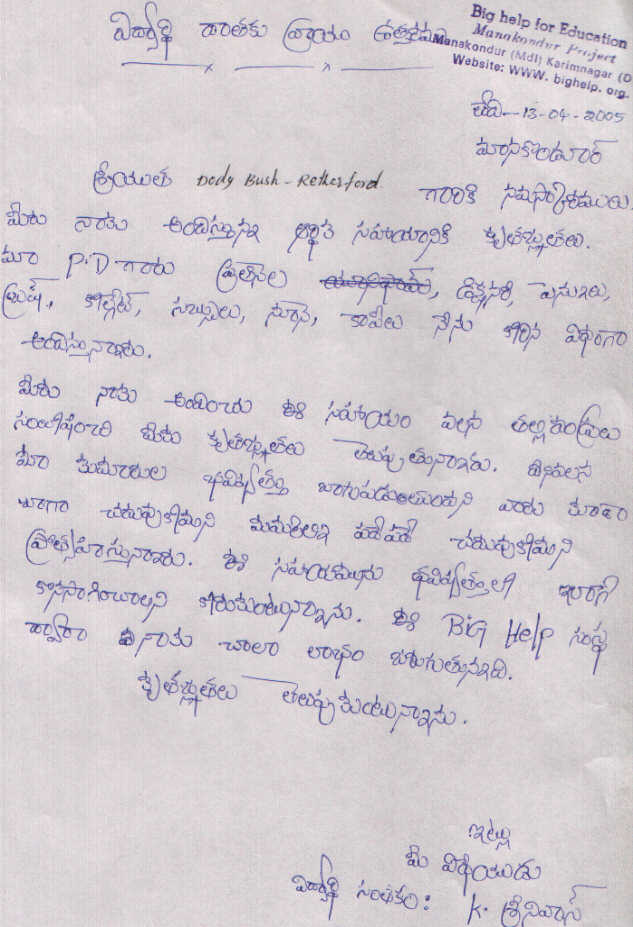 విద్యార్థి దాతకు వ్రాయు ఉత్తరము
Big help for Education
Manakondur Project
Manakondur (Mdl) Karimnagar (D
Website: WWW. bighelp. org.
తేది—13-04-2005
మానకొండూర్
శ్రీయుత Dody Bush-Retherford గారికి నమస్కారములు.
మీరు నాకు అందిస్తున్న ఆర్థిక సహాయానికి కృతజ్ఞతలు.
మా P.D గారు ప్రతినెల డిక్షనరీ, పెన్నులు,
బ్రష్, కోల్గేట్, సబ్బులు, నూనె, కాపీలు నేను కోరిన విధంగా
అందిస్తున్నారు.
మీరు నాకు అందించు ఈ సహాయం వలన తల్లిదండ్రులు
సంతోషించి మీకు కృతజ్ఞతలు తెలుపుతున్నారు. దీనివలన
మా కుమారుల భవిష్యత్తు బాగుపడుతుందని వారు కూడా
బాగా చదువుకోమని మమ్మల్ని పదే పదే చదువుకోమని
ప్రోత్సహిస్తున్నారు. ఈ సహాయమును భవిష్యత్తులో ఇలాగే
కొనసాగించాలని కోరుకుంటున్నాను. ఈ BIG Help సంస్థ
ద్వారా నాకు చాలా లాభం జరుగుతున్నది.
కృతజ్ఞతలు తెలుపుకుంటున్నాను.
ఇట్లు
మీ విధేయుడు
విద్యార్థి సంతకం: K. శ్రీనివాస్